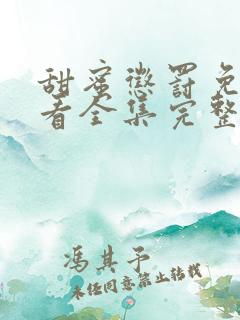 甜蜜惩罚免
看全集完整
冯其予
未经同意禁止转载